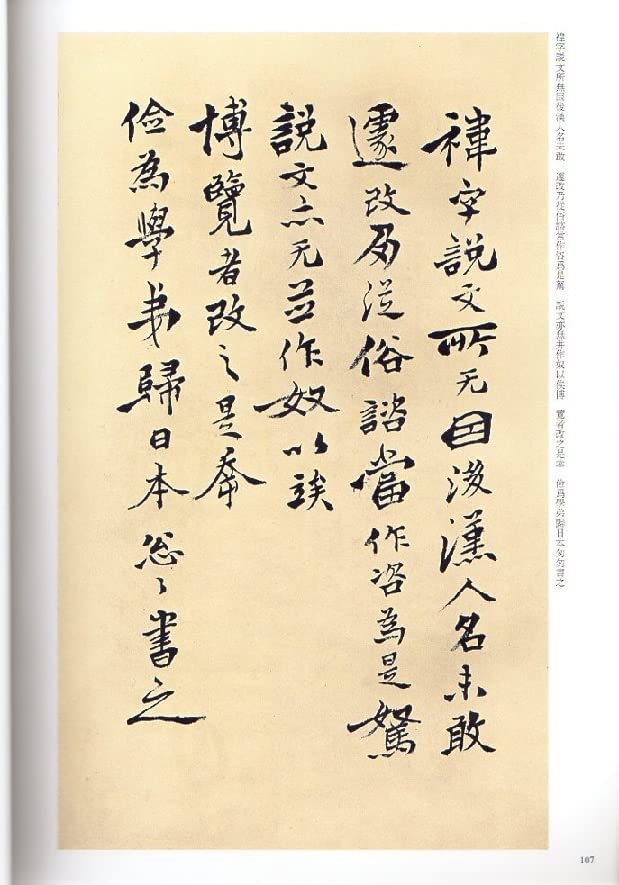 禕字説文所無因後漢人名未敢　遽改乃從俗諮當作咨爲是駑　説文亦無并作奴以俟博　覽者改之是幸　儉爲學弟歸日本匆匆書之
禕字説文所无因後漢人名未敢
遽改乃従俗諮當作咨為是駑
説文亦无並作奴以竢
博覽者改之是幸
儉為學弟歸日本怱々書之
107